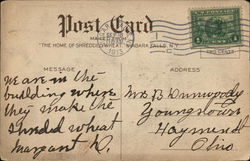 Post Card
"THE HOME OF SHREDDED WHEAT" NIAGARA FALLS, N.Y.
MESSAGE
ADDRESS
1913
We are in the
building where
they make the
Shredded wheat
Margaret D.
Mrs B Dunwoody
Youngstown
Ohio